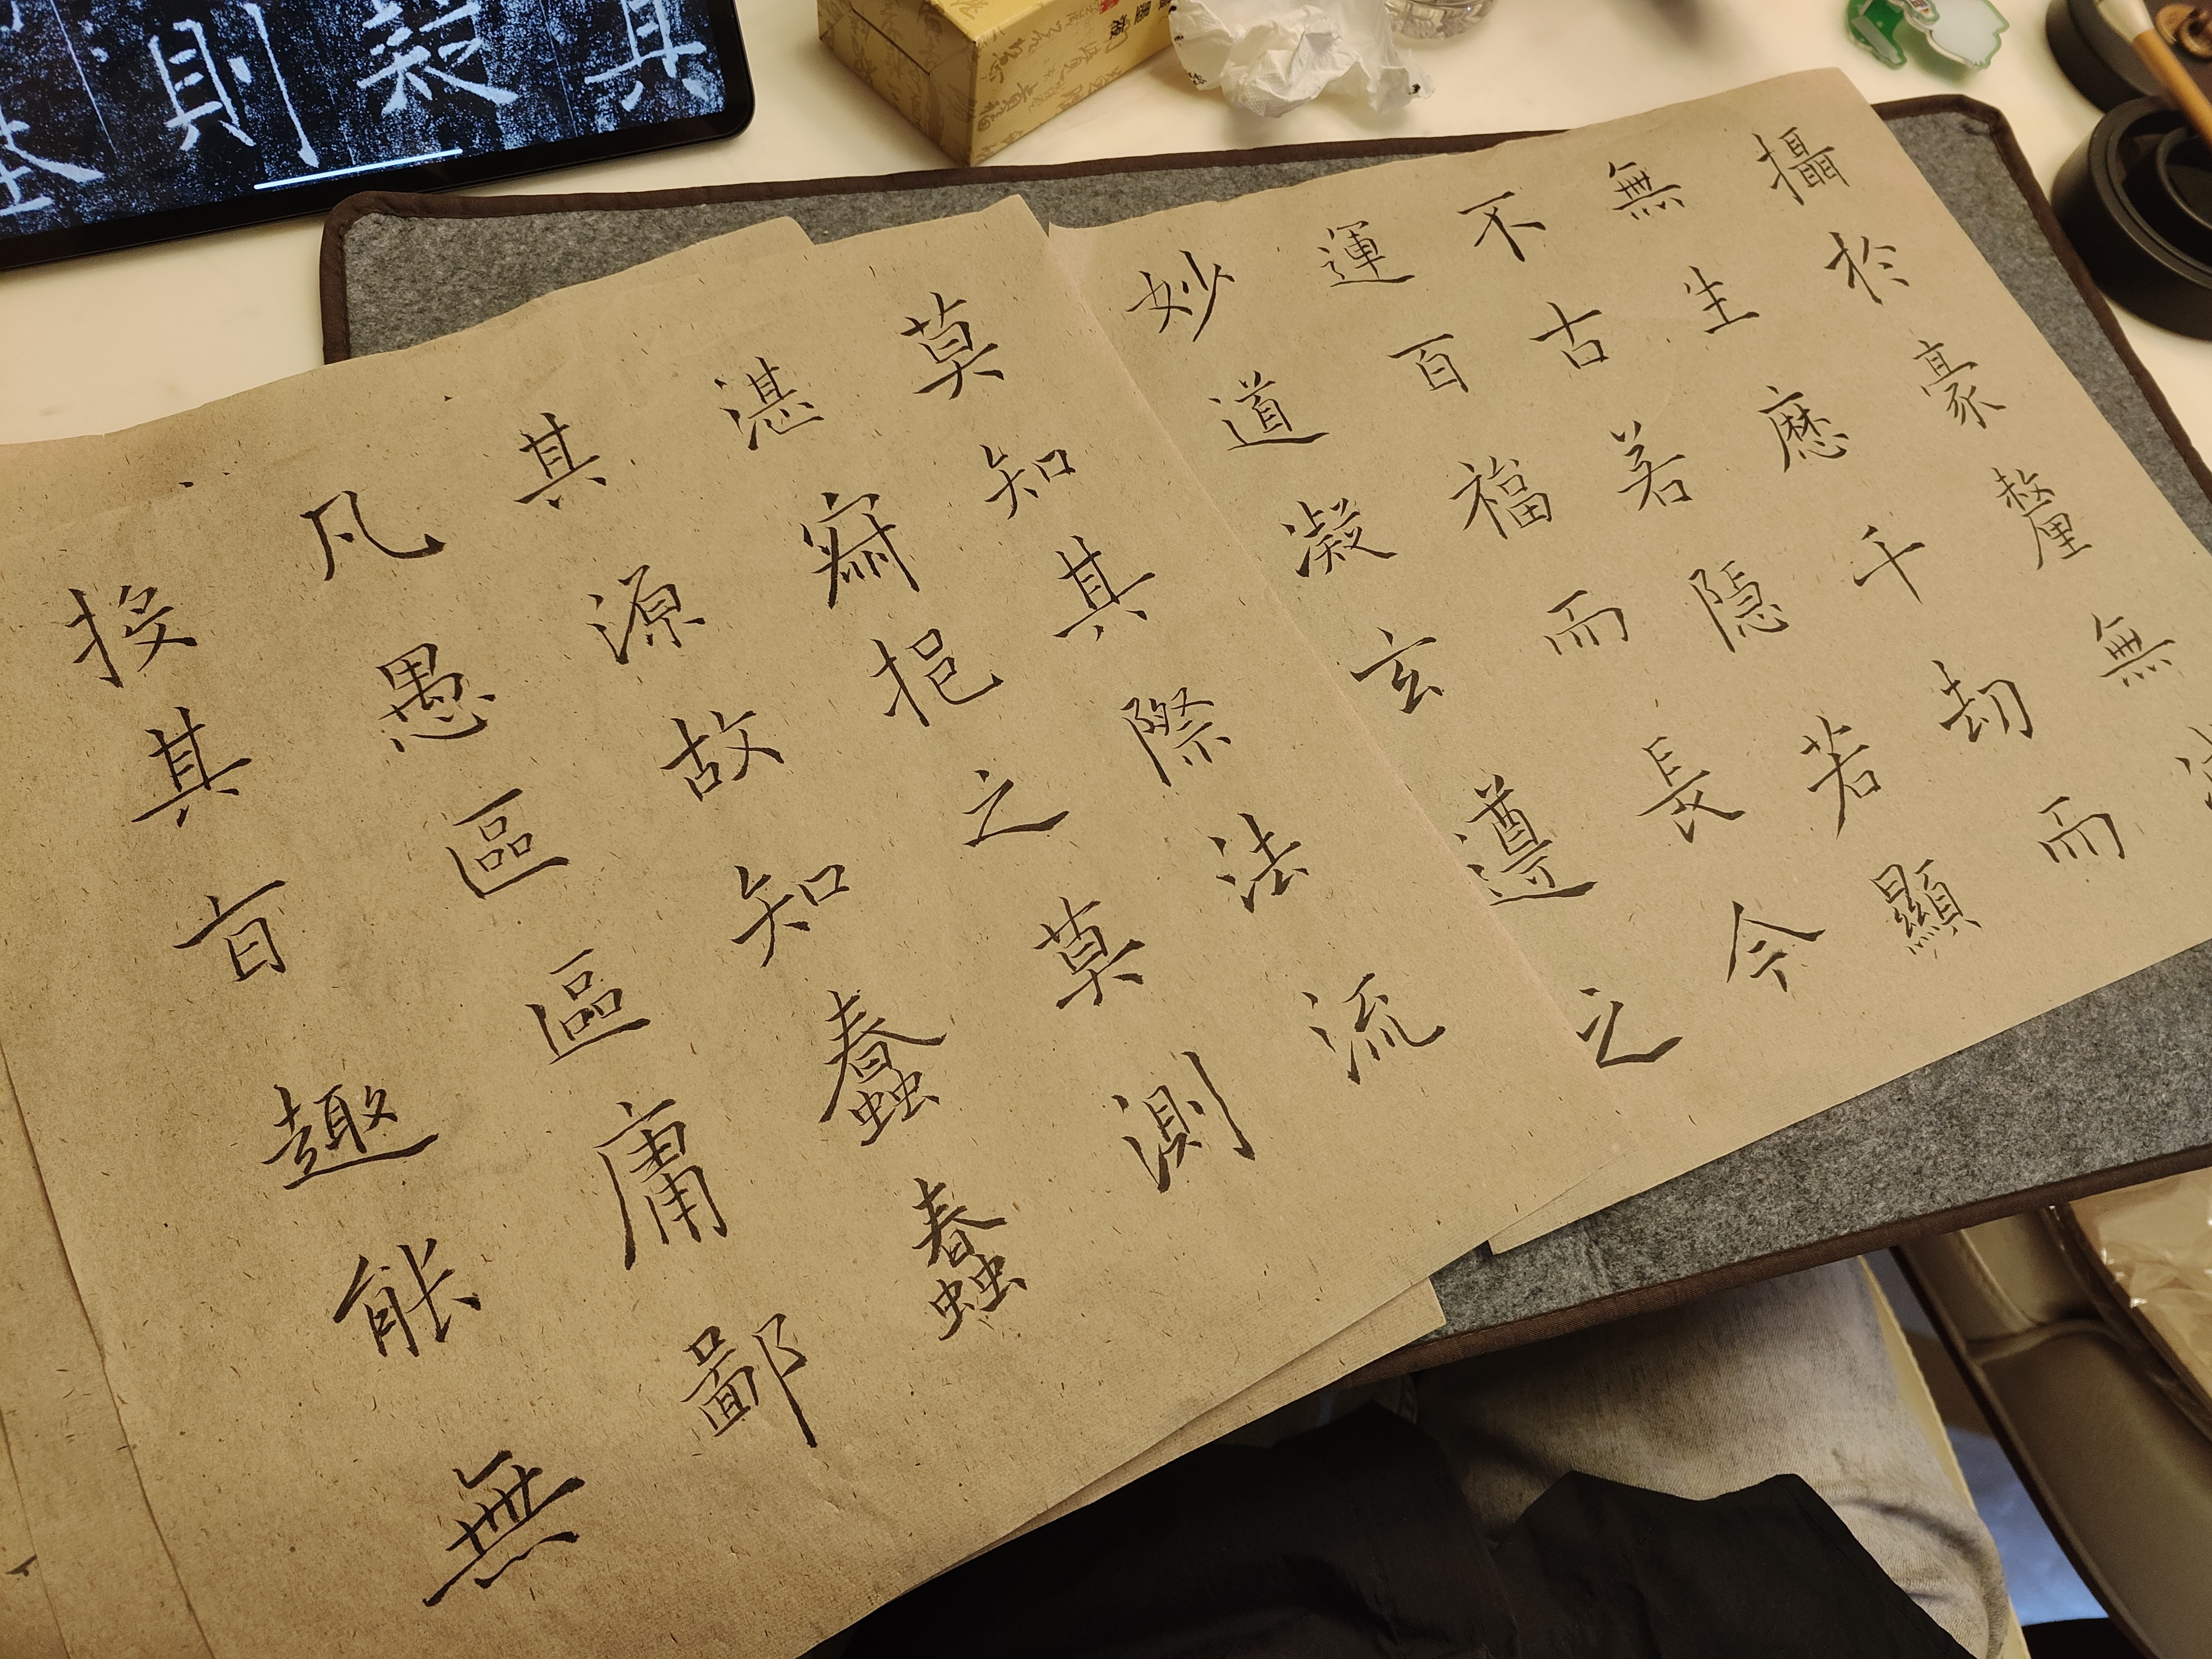 攝於豪釐無
無生歷千劫而
不古若隱若顯
運百福而長今
妙道凝玄遵之
莫知其際法流
湛寂挹之莫測
其源故知蠢蠢
凡愚區區庸鄙
投其旨趣能無
其
疑
則